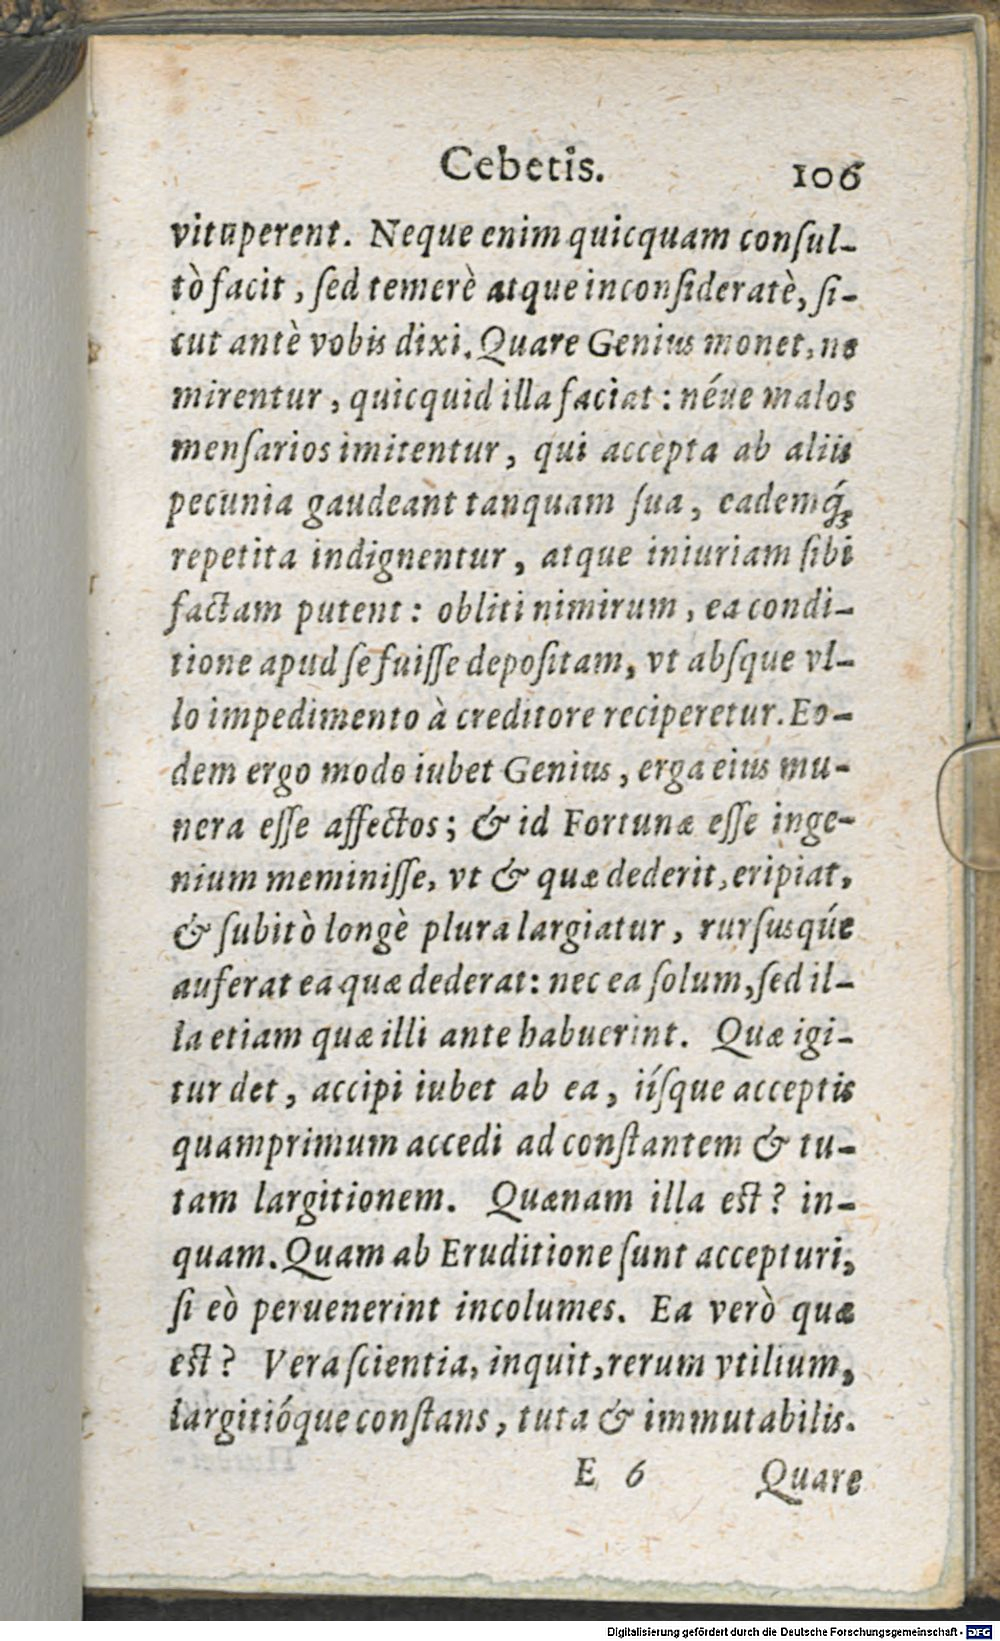 Cebetis. 106
vituperent. Neque enim quicquam conſul-
tò facit, ſed temerè atque inconſideratè, ſi-
cut antè vobis dixi. Quare Genius monet, ne
mirentur, quicquid illa faciat: néue malos
menſarios imitentur, qui accepta ab aliis
pecunia gaudeant tanquam ſua, eademq́;
repetita indignentur, atque iniuriam ſibi
factam putent: obliti nimirum, ea condi-
tione apud ſe fuiſſe depoſitam, vt abſque vl-
lo impedimento à creditore reciperetur. Eo-
dem ergo modo iubet Genius, erga eius mu-
nera eſſe affectos; & id Fortunæ eſſe inge-
nium meminiſſe, vt & quæ dederit, eripiat,
& ſubitò longè plura largiatur, rurſusq́ue
auferat ea quæ dederat: nec ea ſolum, ſed il-
la etiam quæ illi ante habuerint. Quæ igi-
tur det, accipi iubet ab ea, iíſque acceptis
quamprimum accedi ad conſtantem & tu-
tam largitionem. Quænam illa eſt? in-
quam. Quam ab Eruditione ſunt accepturi,
ſi eò peruenerint incolumes. Ea verò quæ
eſt? Vera ſcientia, inquit, rerum vtilium,
largitióque conſtans, tuta & immutabilis.
E 6 Quare
Digitalisierung gefördert durch die Deutsche Forschungsgemeinschaft - DFG